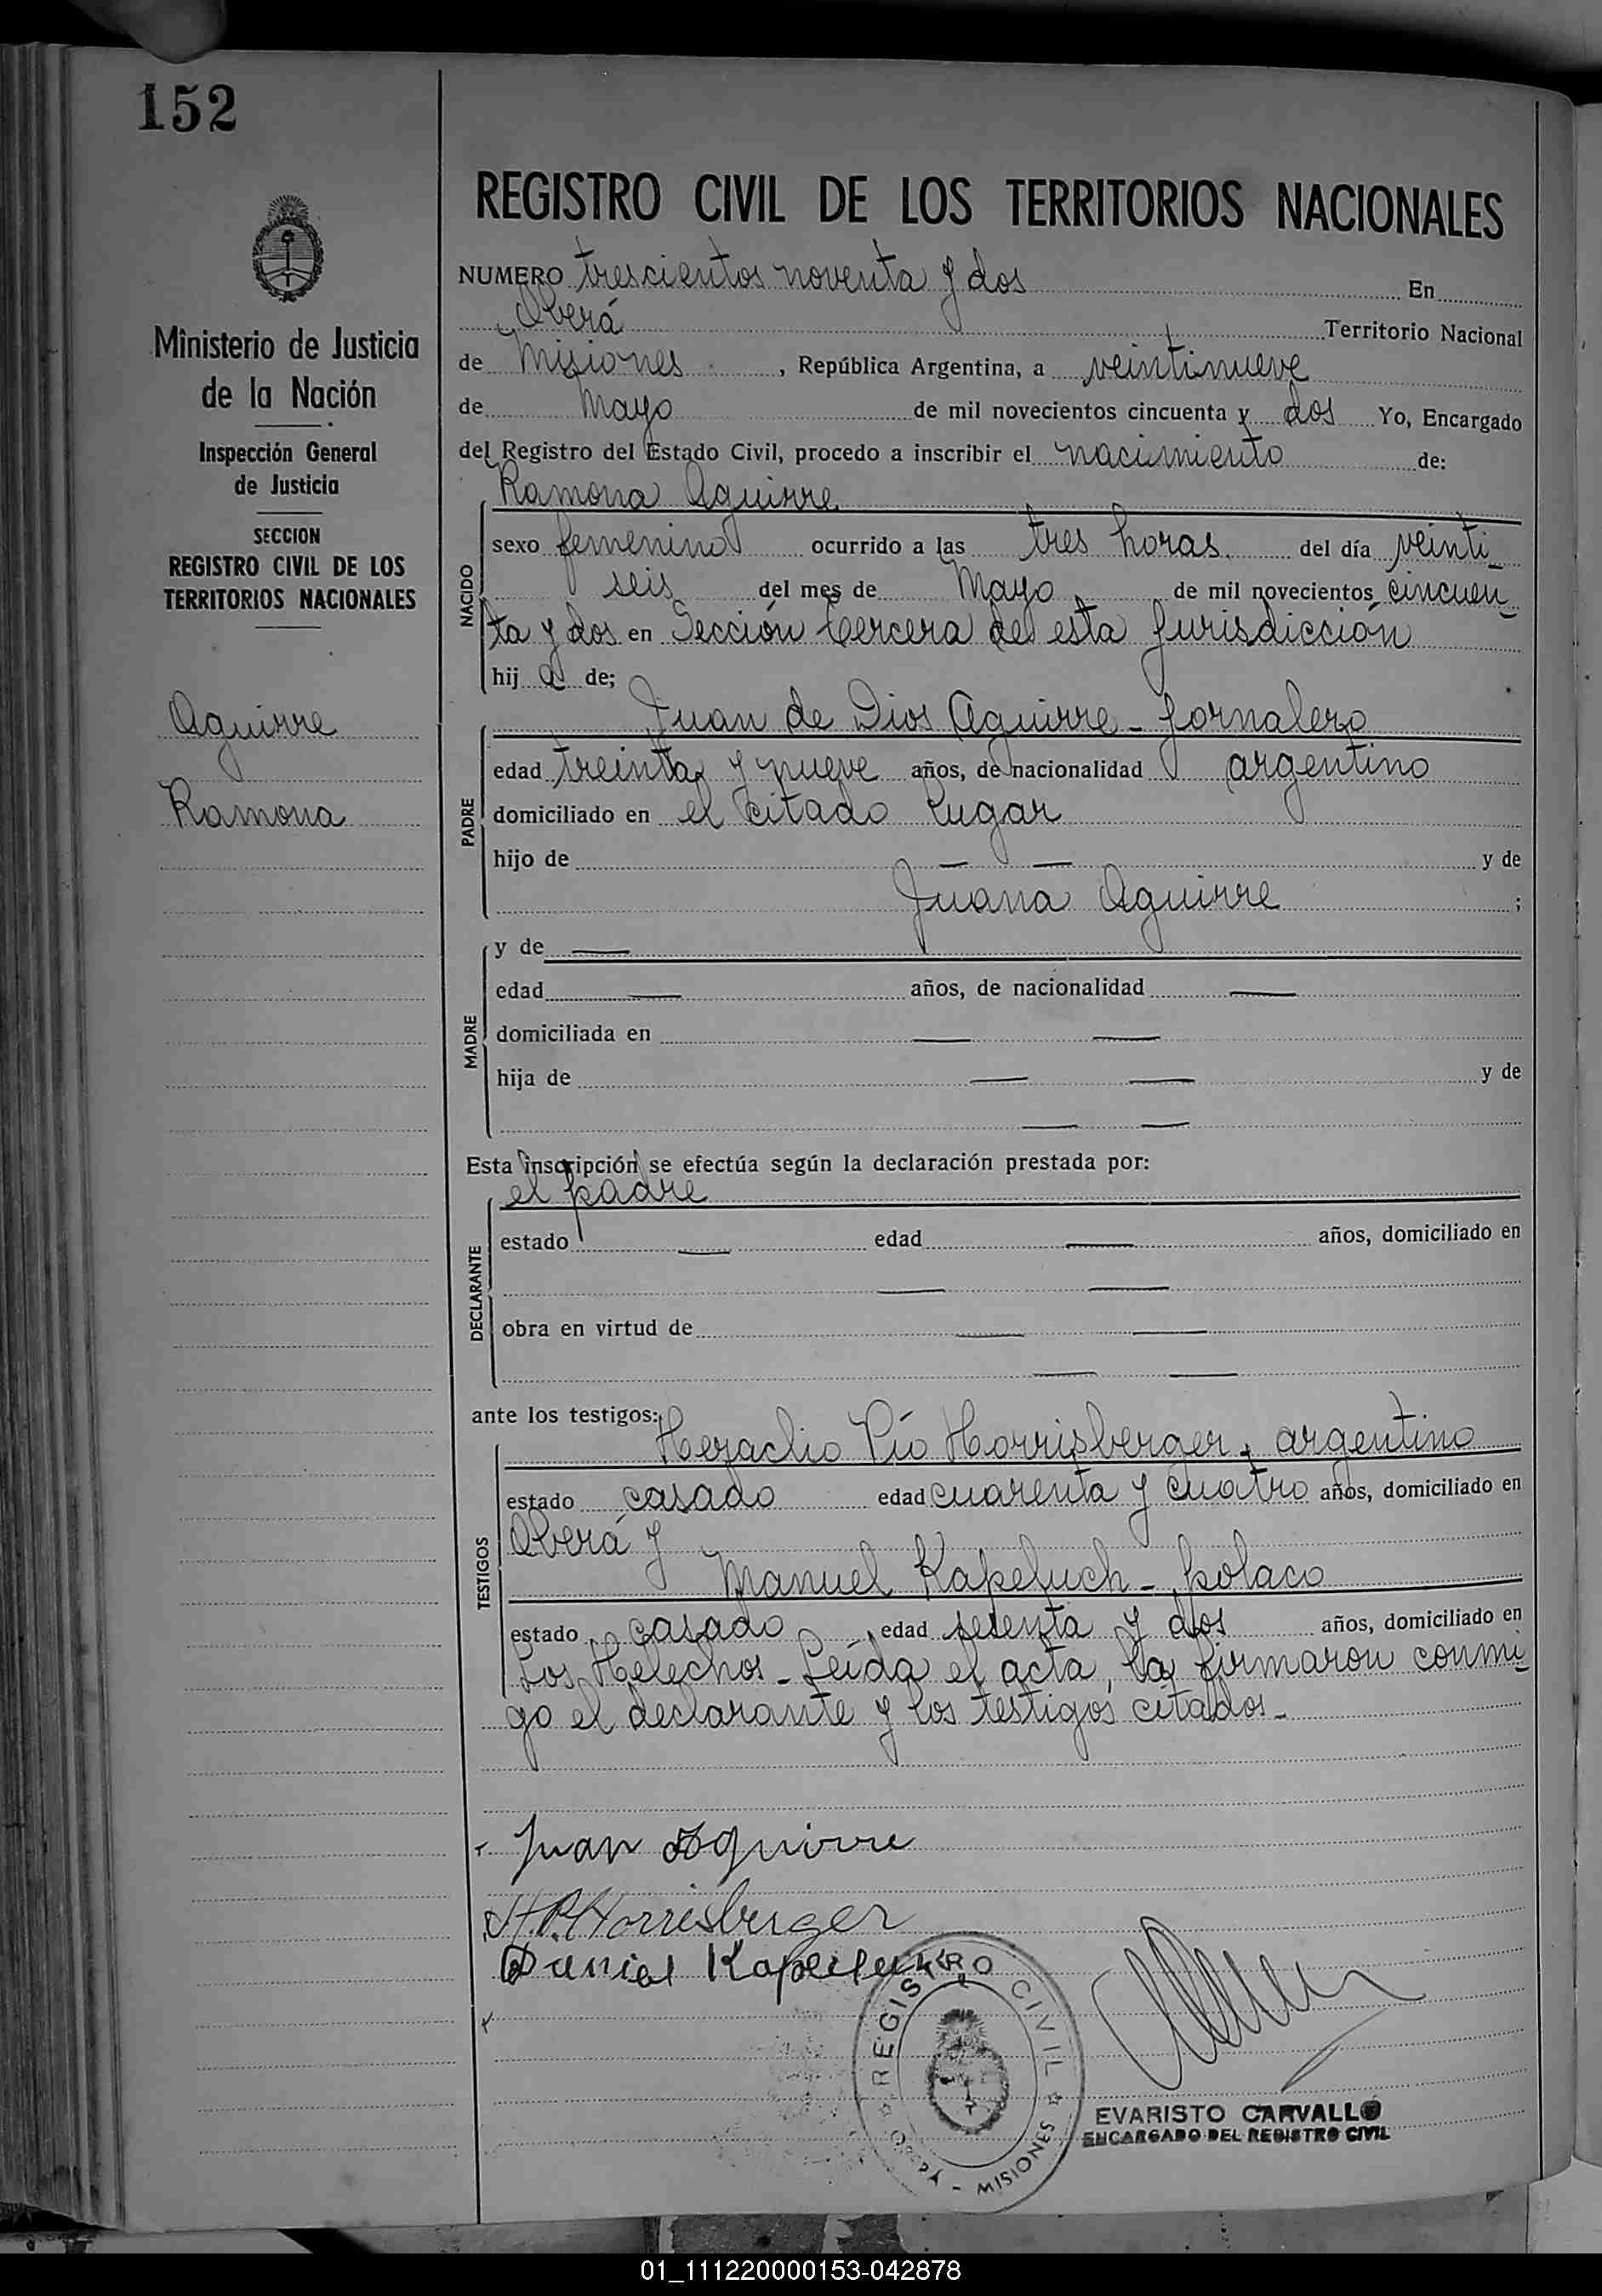 152
REGISTRO CIVIL DE LOS TERRITORIOS NACIONALES
NUMERO trescientos noventa y dos En
Oberá Territorio Nacional
de Misiones, República Argentina, a veintinueve
de Mayo de mil novecientos cincuenta y dos Yo, Encargado
del Registro del Estado Civil, procedo a inscribir el nacimiento de:
Ramona Aguirre
NACIDO
sexo femenino ocurrido a las tres horas del día veinti-
seis del mes de Mayo de mil novecientos cincuen-
ta y dos en Sección tercera de esta jurisdicción
hija de;
Juan de Dios Aguirre - jornalero
PADRE
edad treinta y nueve años, de nacionalidad argentino
domiciliado en el citado lugar
hijo de — — y de
Juana Aguirre ;
MADRE
y de —
edad — años, de nacionalidad —
domiciliada en — —
hija de — — y de
— —
Esta inscripción se efectúa según la declaración prestada por:
el padre
DECLARANTE
estado — edad — años, domiciliado en
— —
obra en virtud de — —
— —
ante los testigos:
Heraclio Pío Horrisberger, argentino
TESTIGOS
estado casado edad cuarenta y cuatro años, domiciliado en
Oberá y
Manuel Kapeluch - polaco
estado casado edad y dos años, domiciliado en
Los Helechos - Leída el acta, la firmaron conmi-
go el declarante y los testigos citados -
Juan Aguirre
H.P. Horrisberger
REGISTRO CIVIL
OBERÁ - MISIONES
EVARISTO CARVALLO
ENCARGADO DEL REGISTRO CIVIL
Ministerio de Justicia
de la Nación
Inspección General
de Justicia
SECCION
REGISTRO CIVIL DE LOS
TERRITORIOS NACIONALES
Aguirre
Ramona
01_111220000153-042878